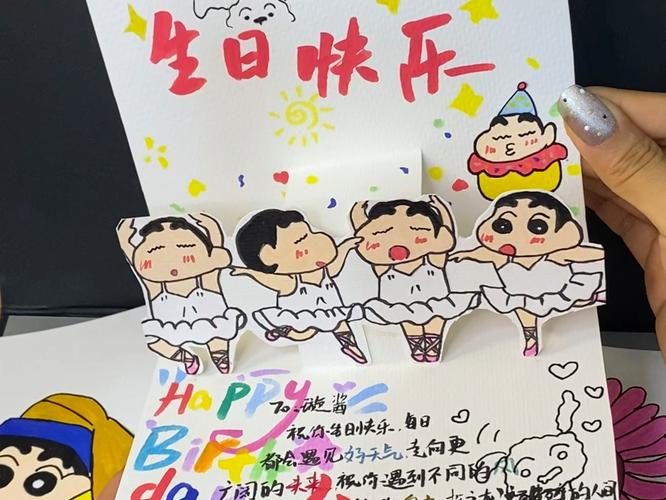 生日快乐
Happy
To 璇酱
祝你生日快乐，每日
Birthda
都会遇见好天气 走向更
广阔的未来 祝你遇到不同的
的人间